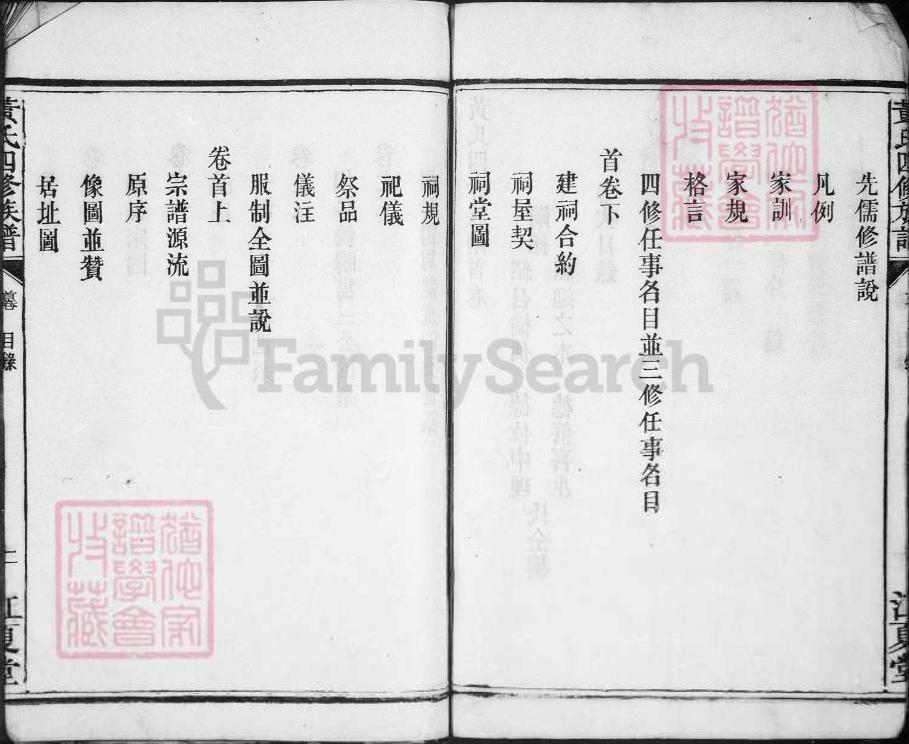 先儒修譜說
凡例
家訓
家規
格言
四修任事名目並三修任事名目
首卷下
建祠合約
祠屋契
祠堂圖
祠規
祀儀
祭品
儀注
服制全圖並說
卷首上
宗譜源流
原序
像圖並贊
居址圖
黃氏四修族譜
目錄
二
江夏堂
FamilySearch
猶他家譜學會收藏